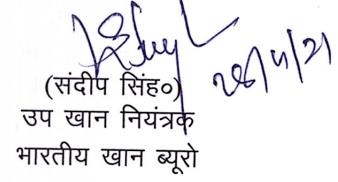 28/4/21
(संदीप सिंह०)
उप खान नियंत्रक
भारतीय खान ब्यूरो